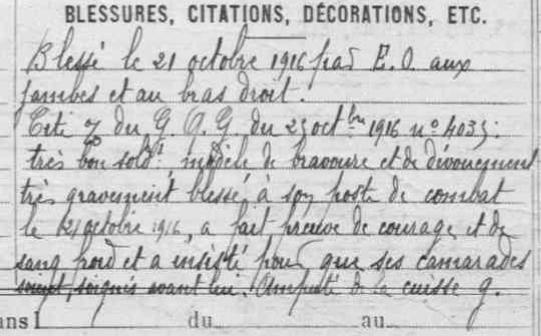 BLESSURES, CITATIONS, DÉCORATIONS, ETC.
Blessé le 21 octobre 1916 par E. O. aux
jambes et au bras droit.
Cité du G. Q. G. du 25 octbre 1916 no 4035:
très bon soldt modèle de bravoure et de dévouement
très gravement blessé, à son poste de combat
le 21 octobre 1916, a fait preuve de courage et de
sang froid et a insisté pour que ses camarades
soient soignés avant lui. Amputé de la cuisse g.
ans l du au